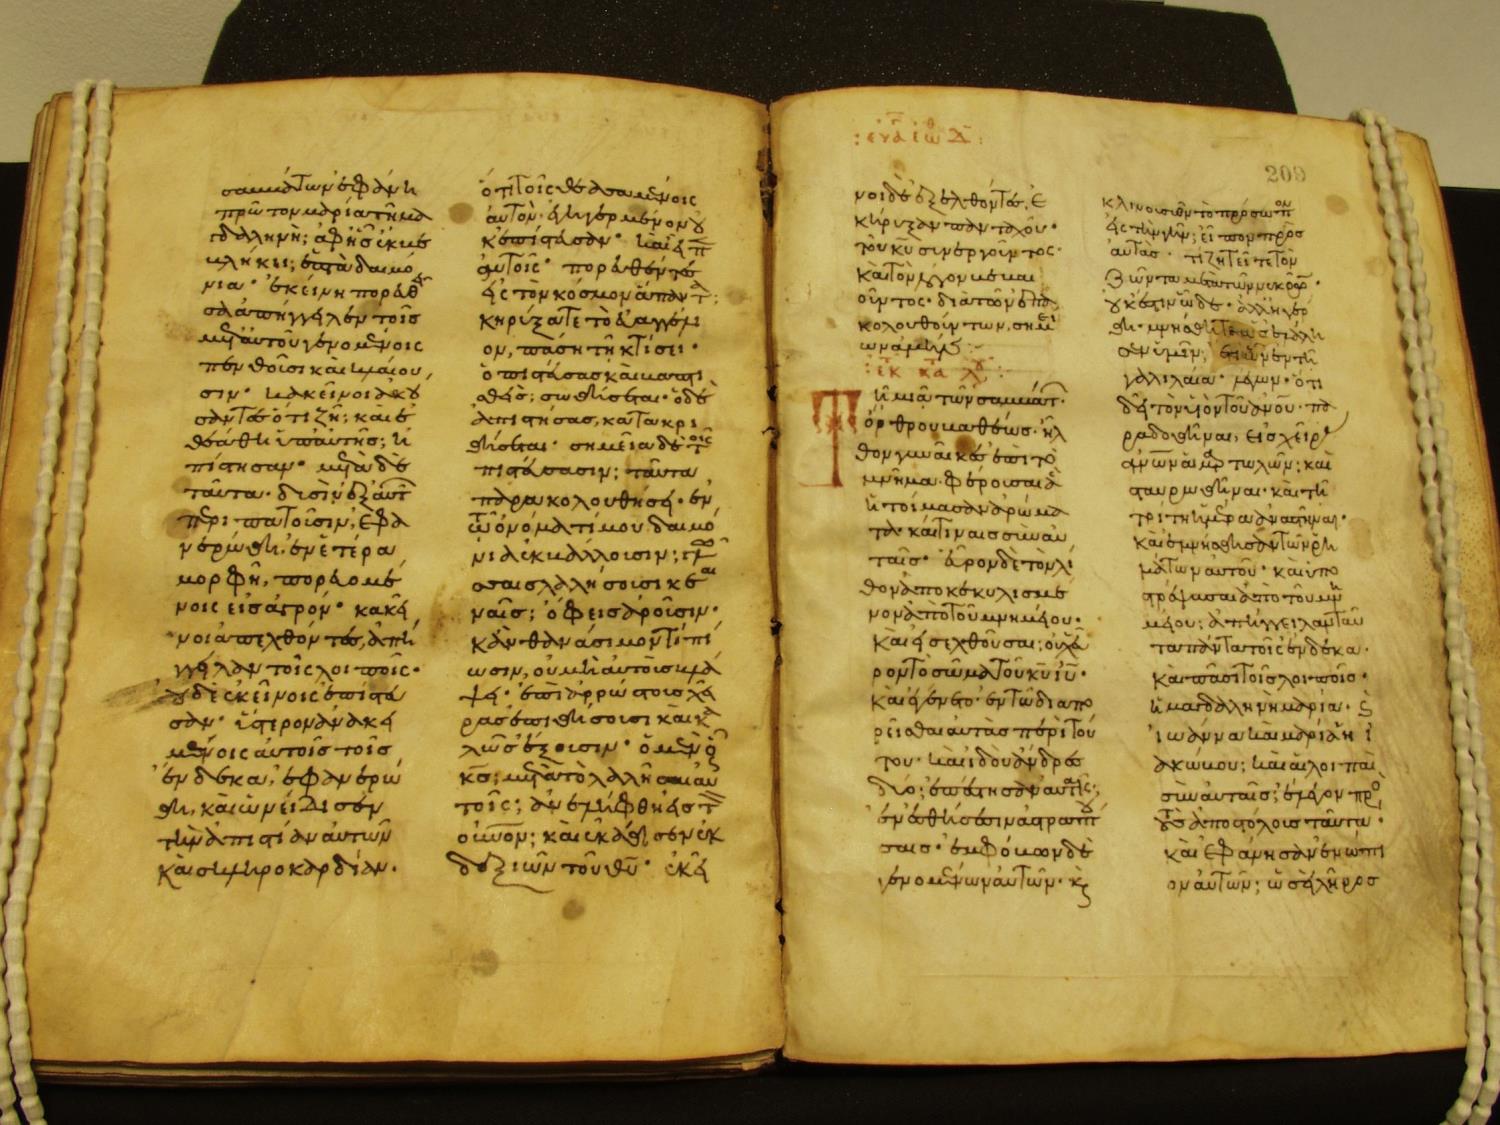 σαββάτων ἐφάνη
πρῶτον μαρία τῆ μα
γδαληνῆ; ἀφ ἧς ἐκβε
βλήκει; ἑπτὰ δαιμό
νια· ἐκείνη πορευθεῖ
σα ἀπήγγειλεν τοῖς
μετ αὐτοῦ γενομένοις
πενθοῦσι καὶ κλαίου
σιν· κακεῖνοι ἀκού
σαντες ὅτι ζῆ; καὶ ἐ
θεάθη ὑπ αὐτῆς; ἠ
πίστησαν· μετὰ δὲ
ταῦτα· δυσὶν ἐξ αὐτ
περιπατοῦσιν, ἐφα
νερώθη, ἐν ἑτέρα
μορφῆ, πορευομέ
νοις εἰς ἀγρόν· κακεῖ
νοι ἀπελθόντες, ἀπή
γγειλαν τοῖς λοιποῖς·
οὐδὲ ἐκείνοις ἐπίστευ
σαν· ὕστερον ἀνακει
μένοις αὐτοῖς τοῖς
ἕνδεκα, ἐφανερώ
θη, καὶ ὠνείδισεν
τὴν ἀπιστίαν αὐτῶν
καὶ σκληροκαρδίαν·
ὅτι τοῖς θεασαμένοις
αὐτὸν· ἐγηγερμένον οὐ
κ ἐπίστευσαν· καὶ εἶπ
αὐτοῖς· πορευθέντες
εἰς τὸν κόσμον ἅπαντ;
κηρύξατε τὸ εὐαγγέλι
ον, πάση τῆ κτίσει·
ὁ πιστεύσας καὶ βαπτι
σθείς; σωθήσεται· ὁ δὲ
ἀπιστήσας, κατακρι
θήσεται· σημεῖα δὲ τοῖς
πιστεύσασιν; ταῦτα
παρακολουθήσει· ἐν
τῶ ὀνόματί μου δαιμό
νια ἐκβάλλουσιν; γλώ
σσαις λαλήσουσι και
ναῖς; ὄφεις ἀροῦσιν·
κἂν θανάσιμόν τι πί
ωσιν, οὐ μὴ αὐτοὺς βλά
ψει· ἐπὶ ἀρρώστους χεῖ
ρας ἐπιθήσουσι καὶ κα
λῶς ἕξουσιν· ὁ μὲν οὖ
κς; μετὰ τὸ λαλῆσαι αὐ
τοῖς; ἀνελήφθη εἰς τ
οὐνον; καὶ ἐκάθισεν ἐκ
δεξιῶν τοῦ θυ· ἐκεῖ
:εὐα ἑω Δ:
209
νοι δὲ ἐξελθόντες, ἐ
κήρυξαν πανταχοῦ·
τοῦ κυ συνεργοῦντος·
καὶ τὸν λόγον βεβαι
οῦντος· διὰ τῶν ἐπα
κολουθούντων, σημεί
ων ἀμήν :-
:ἐκ κτ λκ :-
Τῆ μιᾶ τῶν σαββάτ·
ὄρθρου βαθέως· ἦλ
θον γυναῖκες ἐπὶ τὸ
μνῆμα· φέρουσαι ἃ
ἡτοίμασαν ἀρώμα
τα· καί τιναις σὺν αὐ
ταῖς· εὗρον δὲ τὸν λί
θον ἀποκεκυλισμέ
νον ἀπὸ τοῦ μνημείου·
καὶ εἰσελθοῦσαι; οὐχ εὗ
ρον τὸ σῶμα τοῦ κυ ιυ·
καὶ ἐγένετο· ἐν τῶ διαπο
ρεῖσθαι αὐτὰς περὶ τού
του· καὶ ἰδοὺ ἄνδρες
δύο; ἐπέστησαν αὐταῖς;
ἐν ἐσθήσεσιν ἀστραπτ
σαις· ἐμφόβων δὲ
γενομένων αὐτῶν· καὶ
κλινουσῶν τὸ πρόσωπον
εἰς τὴν γῆν; εἶπον πρὸς
αὐτάς· τί ζητεῖτε τὸν
ζῶντα μετὰ τῶν νεκρῶν·
οὐκ ἔστιν ὧδε· ἀλλ ἠγέρ
θη· μνήσθητε ὡς ἐλάλη
σεν ὑμῖν; ἔτι ὢν ἐν τῆ
γαλιλαία· λέγων· ὅτι
δεῖ τὸν υἱὸν τοῦ ἀνου· πα
ραδοθῆναι, εἰς χεῖρας
ἀνων ἁμαρτωλῶν; καὶ
σταυρωθῆναι· καὶ τῆ
τρίτη ἡμέρα ἀναστῆναι·
καὶ ἐμνήσθησαν τῶν ῥη
μάτων αὐτοῦ· καὶ ὑπο
στρέψασαι ἀπὸ τοῦ μνη
μείου; ἀπήγγειλαν ταῦ
τα πάντα τοῖς ἕνδεκα·
καὶ πᾶσι τοῖς λοιποῖς·
ἡ μαγδαληνὴ μαρία· καὶ
ἰωάννα καὶ μαρία ἡ ἰ
ακώβου; καὶ αἱ λοιπαὶ
σὺν αὐταῖς; ἔλεγον πρὸς
τοὺς ἀποστόλους ταῦτα·
καὶ ἐφάνησαν ἐνώπι
ον αὐτῶν; ὡσεὶ λῆρος